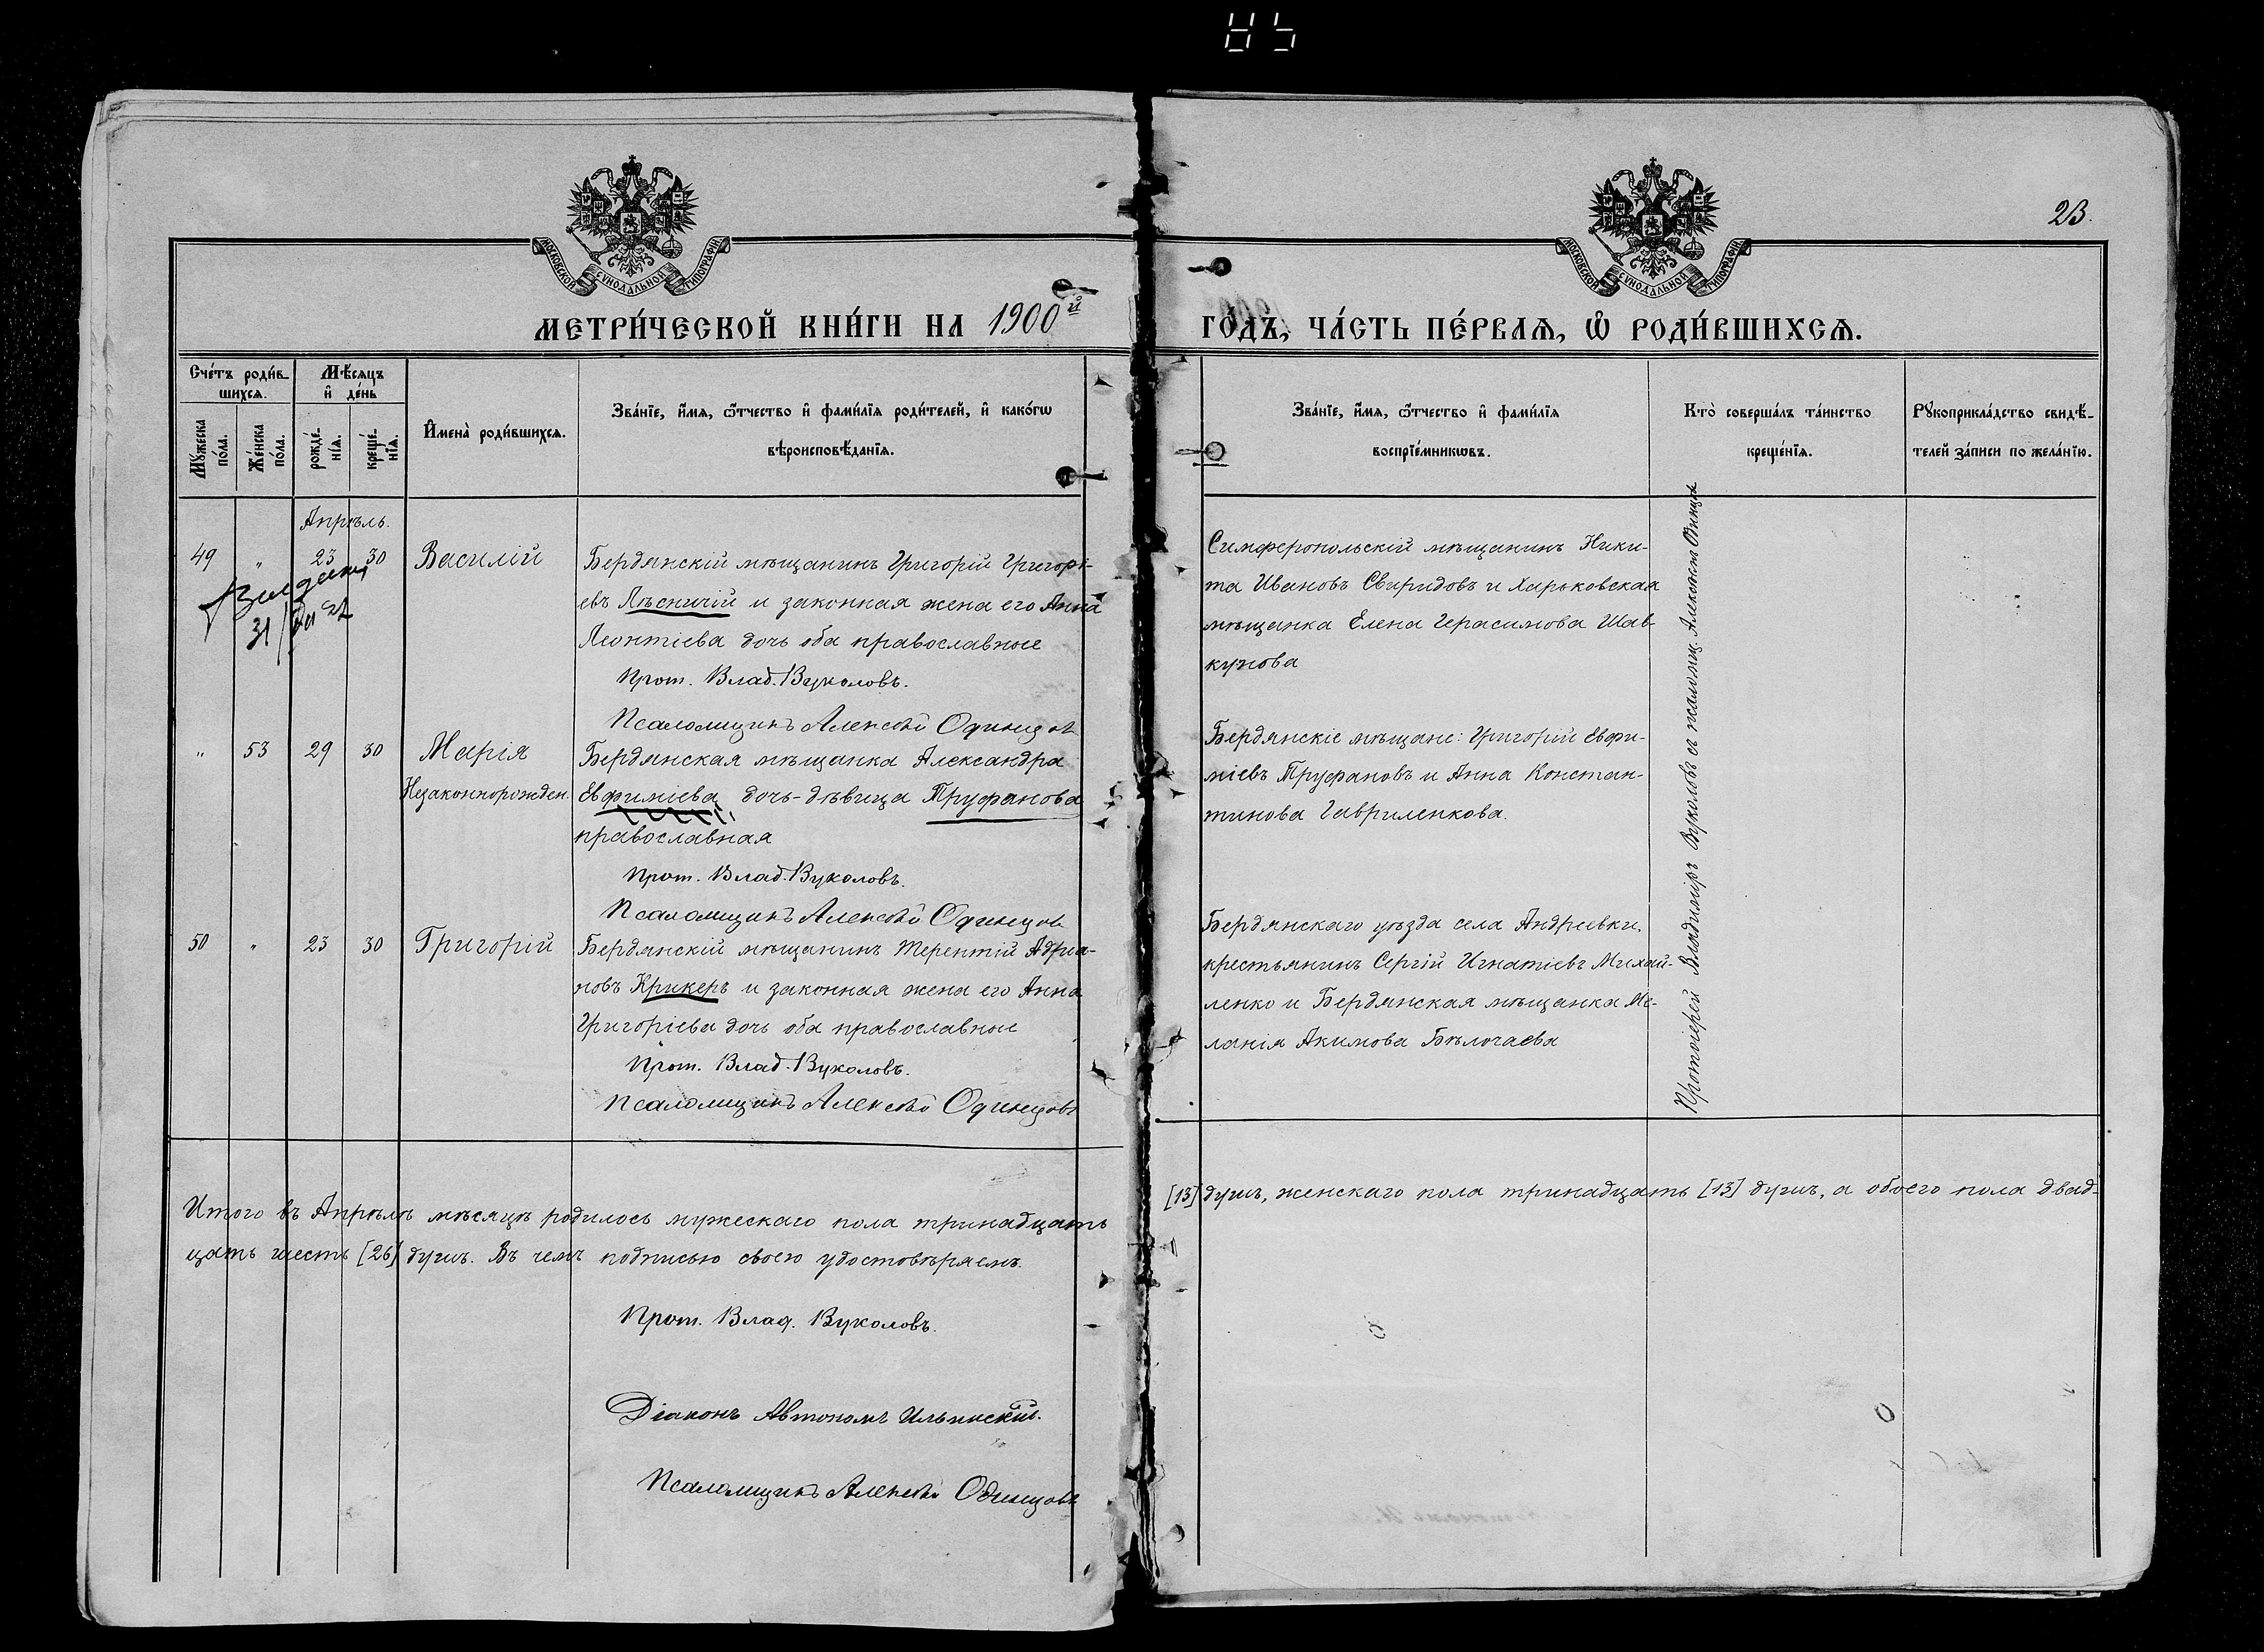 23.
МОСКОВСКОЙ СѴНОДАЛЬНОЙ ТИПОГРАФІИ
МОСКОВСКОЙ СѴНОДАЛЬНОЙ ТИПОГРАФІИ
МЕТРИ́ЧЕСКОЙ КНИ́ГИ НА 1900й
ГО́ДЪ, ЧА́СТЬ ПЕ́РВАѦ, Ѡ҆ РОДИ́ВШИХСѦ.
Сче́тъ роди́в-
шихсѧ.
Мꙋ́жеска по́ла.
Же́нска по́ла.
Мѣ́сѧцъ
и҆ де́нь
рожде́-
нїѧ.
креще́-
нїѧ.
И҆мена̀ роди́вшихсѧ.
Зва́нїе, и҆́мѧ, ѻ҆́тчество и҆ фамі́лїѧ роди́телей, и҆ како́гѡ
вѣроисповѣ́данїѧ.
Зва́нїе, и҆́мѧ, ѻ҆́тчество и҆ фамі́лїѧ
воспрїе́мникѡвъ.
Кто̀ соверша́лъ та́инство
креще́нїѧ.
Рꙋкоприкла́дство свидѣ́-
телей за́писи по жела́нїю.
Апрѣль.
49 " 23 30 Василій
Бердянскій мѣщанинъ Григорій Григорі-
евъ Лѣсничій и законная жена его Анна
Леонтіева дочь оба православные
Прот. Влад. Вуколовъ.
Псаломщикъ Алексѣй Одинцовъ
31
Симферопольскій мѣщанинъ Ники-
та Ивановъ Свиридовъ и Харьковская
мѣщанка Елена Герасимова Шав-
кунова
" 53 29 30 Марія
Незаконнорожден
Бердянская мѣщанка Александра
Евфиміева дочь-дѣвица Труфанова
православная
Прот. Влад. Вуколовъ.
Псаломщикъ Алексѣй Одинцовъ
Бердянскіе мѣщане: Григорій Евфи-
міевъ Труфановъ и Анна Констан-
тинова Гавриленкова.
50 " 23 30 Григорій
Бердянскій мѣщанинъ Терентій Адріа-
новъ Крикеръ и законная жена его Анна
Григоріева дочь оба православные
Прот. Влад. Вуколовъ.
Псаломщикъ Алексѣй Одинцовъ
Бердянскаго уѣзда села Андреевки,
крестьянинъ Сергій Игнатіевъ Михай-
ленко и Бердянская мѣщанка Ме-
ланія Акимова Бѣлогаева
Протоіерей Владиміръ Вуколовъ съ псаломщ. Алексѣемъ Одинцов
Итого въ Апрѣлѣ мѣсяцѣ родилось мужескаго пола тринадцать
[13] душъ, женскаго пола тринадцать [13] душъ, а обоего пола двад-
цать шесть [26] душъ. Въ чемъ подписью своею удостовѣряемъ.
Прот. Влад. Вуколовъ.
Діаконъ Автономъ Ильинскій.
Псаломщикъ Алексѣй Одинцовъ